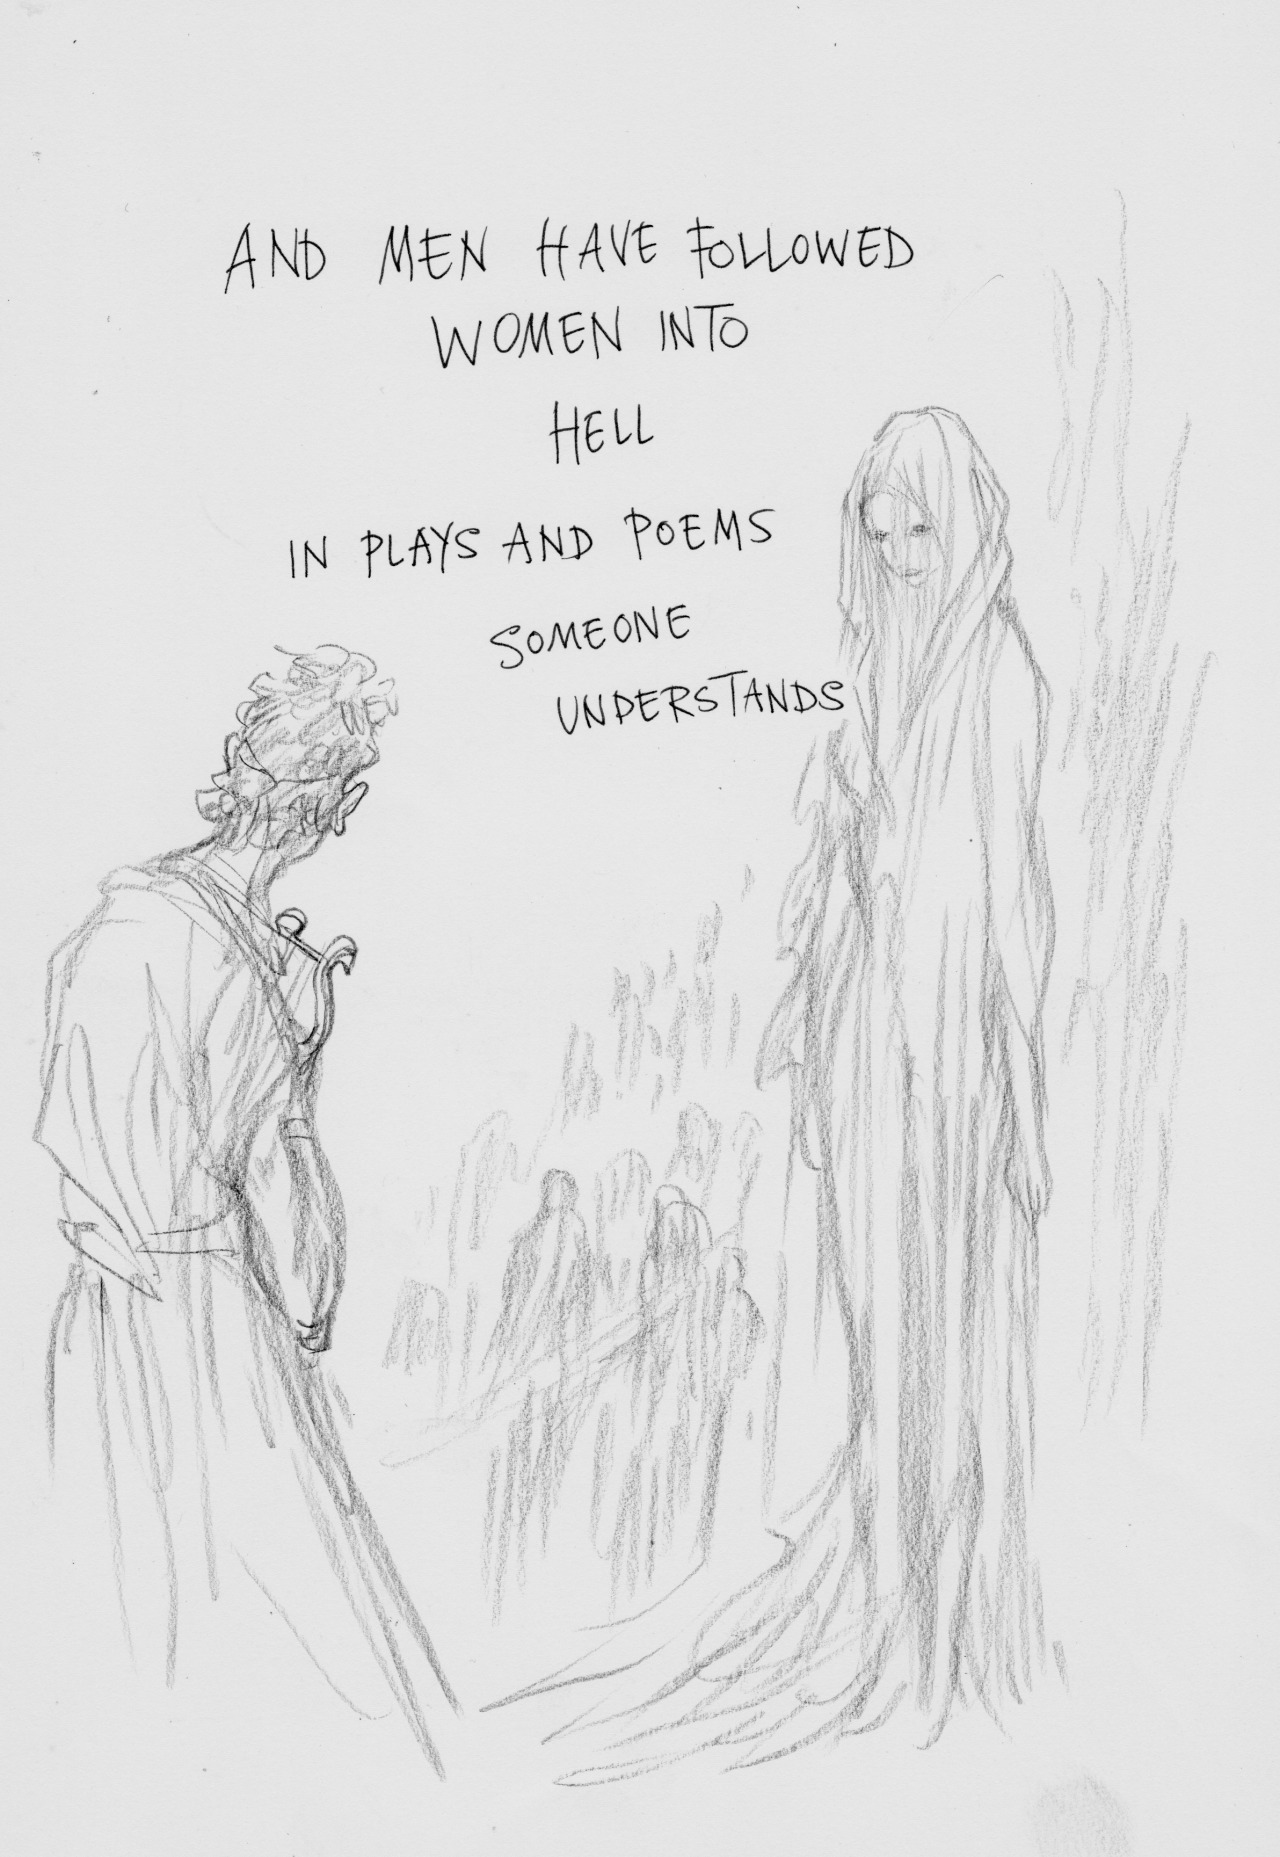 AND MEN HAVE FOLLOWED
WOMEN INTO
HELL
IN PLAYS AND POEMS
SOMEONE
UNDERSTANDS